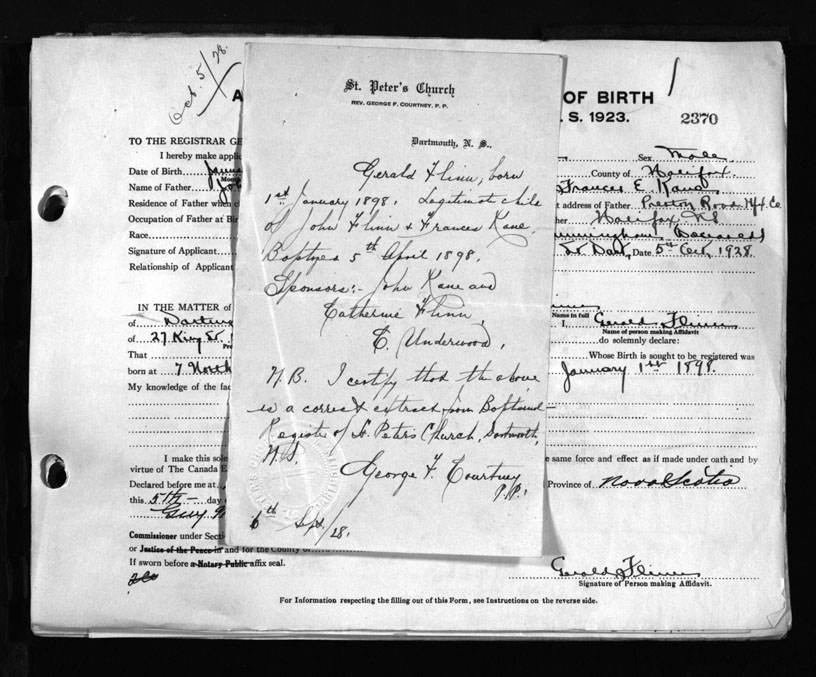 Oct. 5/28.
St. Peter's Church
REV. GEORGE F. COURTNEY, P. P.
Dartmouth, N. S.,
Gerald Flinn, born
1st January 1898. Legitimate child
of John Flinn & Frances Kane.
Baptized 5th April 1898.
Sponsors:- John Kane and
Catherine Flinn,
C. Underwood,
N.B. I certify that the above
is a correct extract from Baptismal
Register of St. Peters Church, Dartmouth,
N.S.
George F. Courtney
P.P.
6th Sept/28.
A
OF BIRTH
S. 1923.
2370
TO THE REGISTRAR GE
I hereby make applic
Sex Male
Date of Birth
County of Halifax.
Name of Father
Frances E. Kane
Residence of Father when c
address of Father Preston Road Hfx Co
Occupation of Father at Bir
her Halifax NS
Race
Deceased
Signature of Applicant
Date 5th Oct, 1928
Relationship of Applicant
IN THE MATTER of
Name in full
of Dartm
I, Gerald Flinn
Name of person making Affidavit
of 27 King St.
do solemnly declare:
That
Whose Birth is sought to be registered was
born at 7 North
January 1st 1898.
My knowledge of the fac
I make this sole
e same force and effect as if made under oath and by
virtue of The Canada E
Declared before me at
Province of Nova Scotia
this 5th day o
Guy
Commissioner under Secti
or Justice of the Peace in and for the County of
If sworn before a Notary Public affix seal.
Gerald Flinn
Signature of Person making Affidavit.
For Information respecting the filling out of this Form, see Instructions on the reverse side.